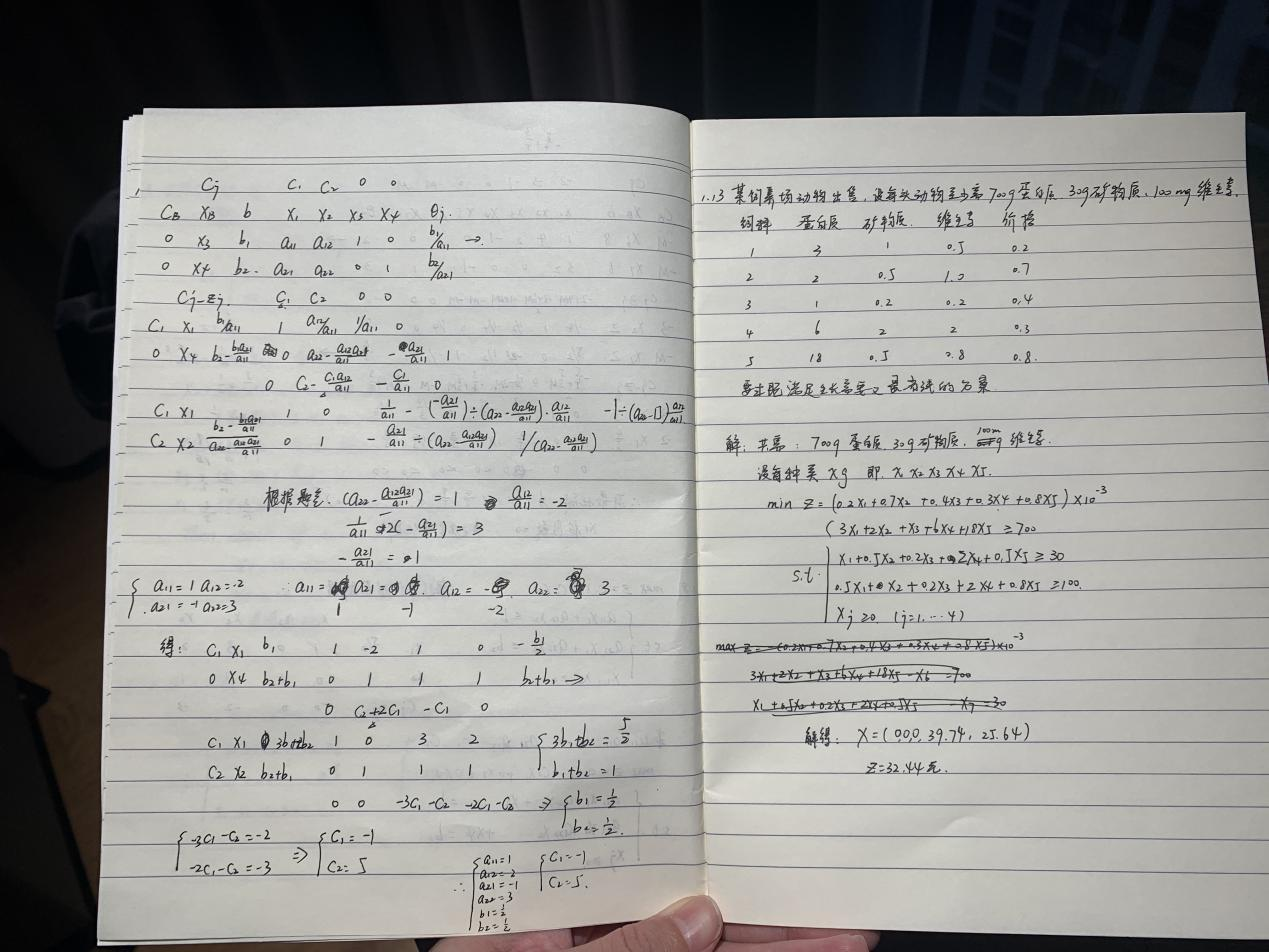 Cj C1 C2 0 0
CB XB b X1 X2 X3 X4 θj.
0 X3 b1 a11 a12 1 0 b1/a11 →.
0 X4 b2 a21 a22 0 1 b2/a21
Cj-Zj C1 C2 0 0
C1 X1 b1/a11 1 a12/a11 1/a11 0
0 X4 b2-b1a21/a11 0 a22-a12a21/a11 -a21/a11 1
0 C2-C1a12/a11 -C1/a11 0
C1 X1 1 0 1/a11-(-a21/a11)÷(a22-a12a21/a11)·a12/a11 -1÷(a22-[])a12/a11
C2 X2 b2-b1a21/a11 / a22-a12a21/a11 0 1 -a21/a11÷(a22-a12a21/a11) 1/(a22-a12a21/a11)
根据题意.(a22-a12a21/a11)=1 a12/a11=-2
1/a11 2(-a21/a11)=3
-a21/a11=1
{a11=1 a12=-2
a21=-1 a22=3
∴a11=1 a21=-1 a12=-2 a22=3
得: C1 X1 b1 1 -2 1 0 -b1/2
0 X4 b2+b1 0 1 1 1 b2+b1→
0 C2+2C1 -C1 0
C1 X1 3b1+2b2 1 0 3 2 {3b1+b2=5/2
C2 X2 b2+b1 0 1 1 1 b1+b2=1
0 0 -3C1-C2 -2C1-C2 ⇒{b1=1/2
b2=1/2.
{-3C1-C2=-2 ⇒{C1=-1
-2C1-C2=-3 C2=5
∴{a11=1 {C1=-1
a12=2 C2=5.
a21=-1
a22=3
b1=1/2
b2=1/2
1.13 某饲养场动物出售,设每头动物至少需700g蛋白质、30g矿物质、100mg维生素.
饲料 蛋白质 矿物质. 维生素 价格
1 3 1 0.5 0.2
2 2 0.5 1.0 0.7
3 1 0.2 0.2 0.4
4 6 2 2 0.3
5 18 0.5 0.8 0.8.
要求既满足生长需要又最省钱的方案
解: 共需: 700g蛋白质.30g矿物质.100m g维生素.
设每种类Xg 即.X1 X2 X3 X4 X5.
min Z=(0.2X1+0.7X2+0.4X3+0.3X4+0.8X5)×10⁻³
{3X1+2X2+X3+6X4+18X5≥700
s.t. X1+0.5X2+0.2X3+2X4+0.5X5≥30
0.5X1+X2+0.2X3+2X4+0.8X5≥100.
Xj≥0 (j=1,…4)
max Z=-(0.2X1+0.7X2+0.4X3+0.3X4+0.8X5)×10⁻³
3X1+2X2+X3+6X4+18X5-X6=700
X1+0.5X2+0.2X3+2X4+0.5X5 -X7=30
解得: X=(0,0,0,39.74,25.64)
Z=32.44元.